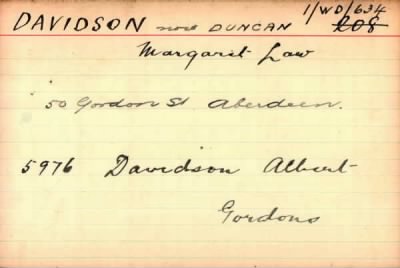 DAVIDSON now DUNCAN 1/WD/634
208
Margaret Law
50 Gordon St Aberdeen.
5976 Davidson Albert
Gordons